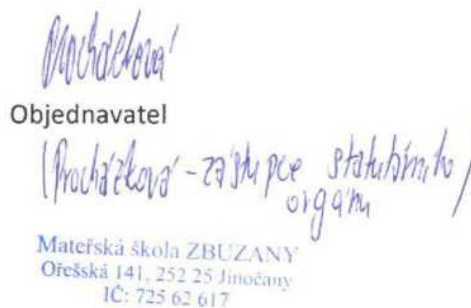 Procházková
Objednavatel
(Procházková - zástupce statutárního
orgánu)
Mateřská škola ZBUZANY
Ořešská 141, 252 25 Jinočany
IČ: 725 62 617